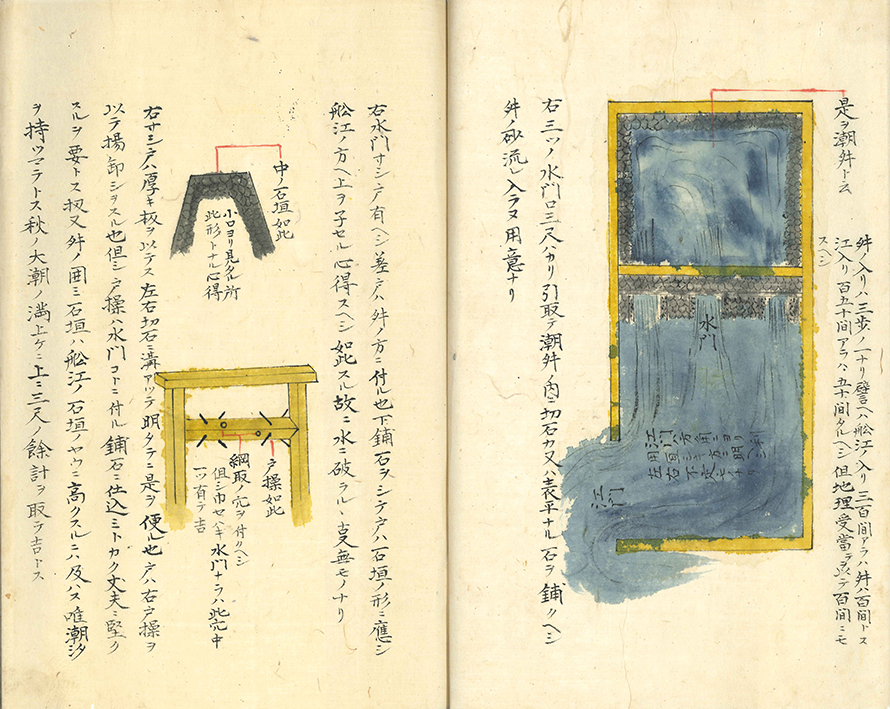 是ヲ潮舛ト云
舛ノ入リハ三歩ノ一ナリ譬ヘハ舩江ノ入リ三百間アラハ舛ハ百間トス
江入リ百五十間アラハ五十間タルヘシ但地理受當
百間ニモ
スヘシ
水門
江門ハ方角ニヨリ
左右不定モナリ
江門
右三ツノ水門口三尺ハカリ引取テ潮舛ノ内ニ切石カ又ハ表平ナル石ヲ鋪クヘシ
舛ノ砂流レ入ラヌ用意ナリ
右水門ニ寸シ戸有ヘシ差戸ハ舛ノ方ニ付ル也下鋪石ヲシテ戸ハ石垣ノ形ニ應シ
舩江ノ方ヘ上ヲ子セル心得スヘシ如此スル故ニ水ニ破ラルヽ支無モノナリ
中ノ石垣如此
小口ヨリ見タル所
此形トナル心得
戸操如此
綱取ノ穴ヲ付クヘシ
但シ巾セハキ水門ナラハ此穴中
一ツ有テ吉
右寸シ戸ハ厚キ板ヲ以テス左右切石ニ溝アツテ明タテニ是ヲ便ル也戸ハ右戸操ヲ
以テ揚卸シヲスル也但シ戸操ハ水門コトニ付ル鋪石ニ仕込ミトカク丈夫ニ堅ク
スルヲ要トス扨又舛ノ囲ミ石垣ハ舩江ノ石垣ノヤウニ高クスルニハ及ハス唯潮タ
ヲ持ツマテトス秋ノ大潮ノ満上ケニ上ミ三尺ノ餘計ヲ取テ吉トス